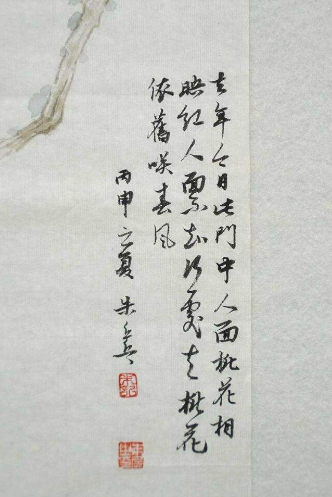 去年今日此門中人面桃花相
映红人面不知何處去桃花
依舊咲春風
丙申之夏朱